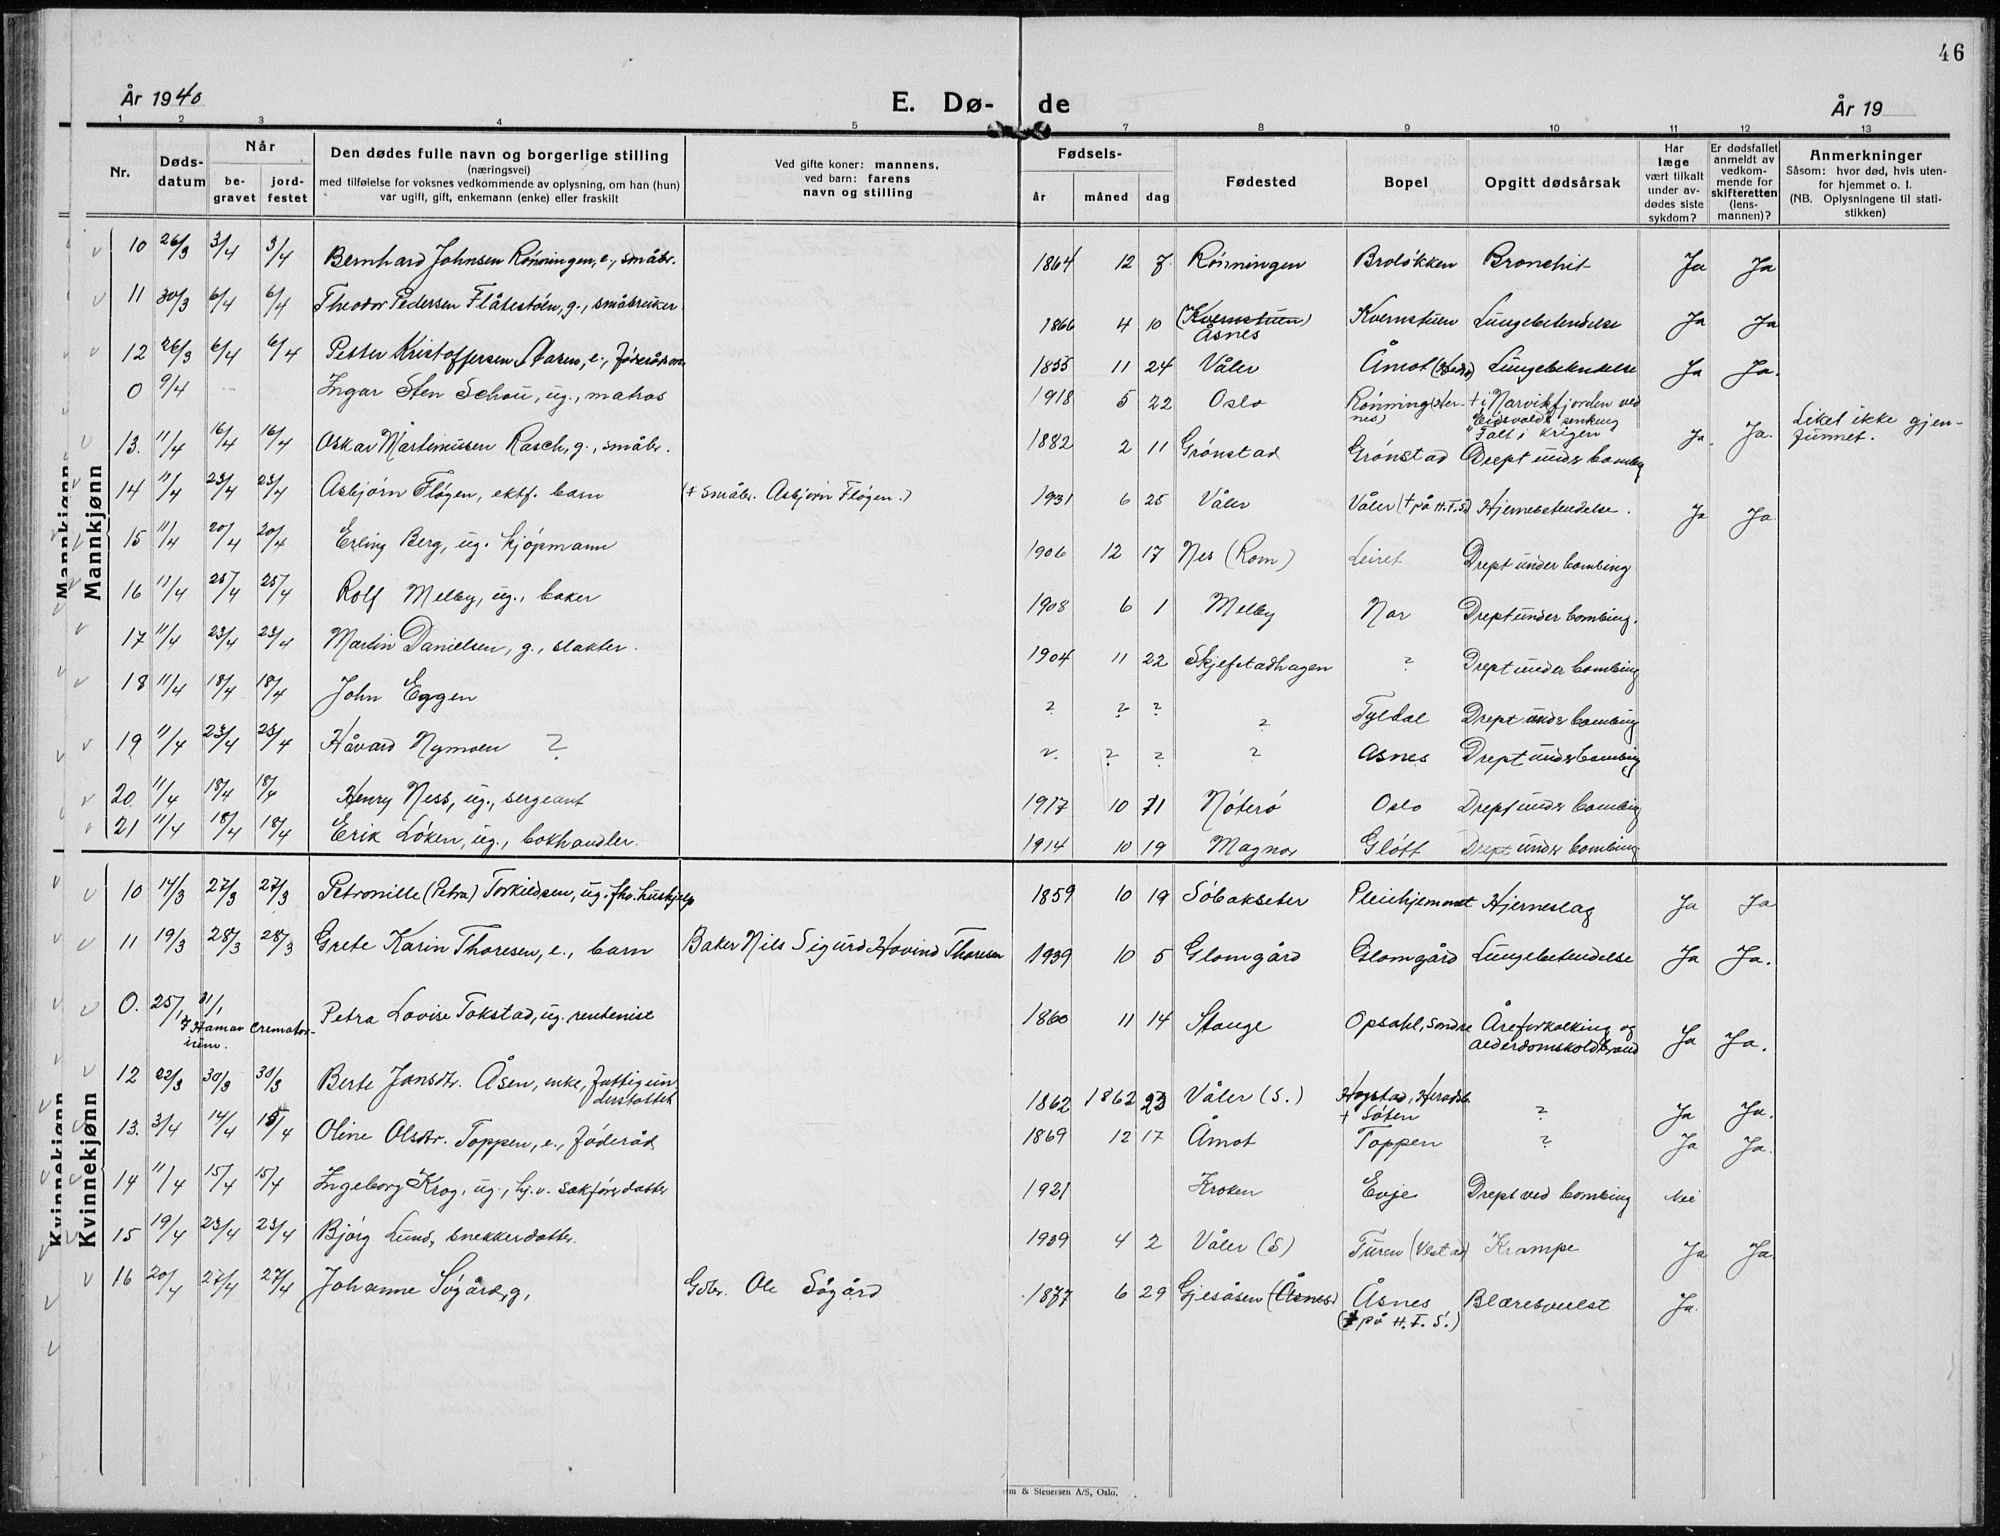 46
År 1940
E. Dø- de
År 19
1 2 3 4 5 7 8 9 10 11 12 13
Nr.
Døds-datum
Når
be-gravet
jord-festet
Den dødes fulle navn og borgerlige stilling
(næringsvei)
med tilføielse for voksnes vedkommende av oplysning, om han (hun)
var ugift, gift, enkemann (enke) eller fraskilt
Ved gifte koner: mannens,
ved barn: farens
navn og stilling
Fødsels-
år måned dag
Fødested
Bopel
Opgitt dødsårsak
Har
læge
vært tilkalt
under av-
dødes siste
sykdom?
Er dødsfallet
anmeldt av
vedkom-
mende for
skifteretten
(lens-
mannen)?
Anmerkninger
Såsom: hvor død, hvis uten-
for hjemmet o. l.
(NB. Oplysningene til stati-
stikken)
Mannkjønn
Mannkjønn
10 26/3 3/4 3/4 Bernhard Johnsen Rønningen, e., småbr. 1864 12 7. Rønningen Broløkken Bronchit Ja Ja
11 30/3 6/4 6/4 Theodor Pedersen Flåtestøen, g., småbruker. 1866 4 10 (Kvernstuen) Åsnes Kvernstuen Lungebetendelse Ja Ja
12 26/3 6/4 6/4 Petter Kristoffersen, e., føderådsm. 1855 11 24 Våler Åmot Lungebetendelse Ja Ja.
0 9/4 - Ingar Sten Schou, ug., matros 1918 5 22 Oslo Rønning(Hernes) † i Narvikfjorden ved "Eidsvolds" senkning "Falt i krigen Liket ikke gjenfunnet.
13. 11/4 16/4 16/4 Oskar Martinusen Rasch, g., småbr. 1882 2 11 Grønstad Grønstad Drept under bombing Ja. Ja.
14 11/4 23/4 23/4 Asbjørn Fløgen, ektf. barn (f. småbr. Asbjørn Fløgen.) 1931 6 25 Våler Våler († på H.F.S) Hjernebetendelse. Ja Ja
15 11/4 20/4 20/4 Erling Berg, ug. kjøpmann 1906 12 17 Nes (Rom) Leiret Drept under bombing
16 11/4 25/4 25/4 Rolf Melby, ug., baker 1908 6 1 Melby Nor Drept under bombing.
17 11/4 23/4 23/4 Martin Danielsen, g., slakter. 1904 11 22 Skjefstadhagen ? Drept under bombing
18 11/4 18/4 18/4 John Eggen ? ? ? ? Tyldal Drept under bombing
19 11/4 23/4 23/4 Håvard Nymoen ? ? ? ? ? Åsnes Drept under bombing
20. 11/4 18/4 18/4 Henry Ness, ug., sergeant 1917 10 11 Nøterø Oslo Drept under bombing
21 11/4 18/4 18/4 Erik Løken, ug., bokhandler. 1914 10 19 Magnor Gløtt Drept under bombing
Kvinnekjønn
Kvinnekjønn
10 14/3 27/3 27/3 Petronille (Petra) Torkildsen, ug. fhv. hushjelp 1859 10 19 Søbakseter Pleiehjemmet Hjerneslag Ja Ja
11 19/3 28/3 28/3 Grete Karin Thoresen, e., barn Baker Nils Sigurd Hovind Thoresen 1939 10 5 Glomgård Glomgård Lungebetendelse Ja Ja.
0. 25/1 31/1 i Hamar Crematorium. Petra Lovise Tokstad, ug. rentenist 1860 11 14 Stange Opsahl, Sondre Åreforkalking og alderdomskoldbrand Ja Ja.
12 22/3 30/3 30/3 Berte Jansdtr. Åsen, enke, fattigunderstøttet 1862 1862 23 Våler (S.) Hogstad, Heradsb. † Søten ? Ja Ja.
13. 3/4 14/4 15/4 Oline Olsdtr. Toppen, e., føderåd 1869 12 17 Åmot Toppen ? Ja Ja.
14 11/4 15/4 15/4 Ingeborg Krog, ug., hj.v. sakførerdatter 1921 Kroken Evje Drept ved bombing Nei
15 19/4 23/4 23/4 Bjørg Lund, snekkerdatter. 1939 4 2 Våler (S) Turen (Vestad) Krampe Ja Ja
16 20/4 27/4 27/4 Johanne Søgård, g, Gdbr. Ole Søgård 1877 6 29 Gjesåsen (Åsnes) Åsnes († på H.F.S.) Blæresvulst Ja.
& Stenersen A/S, Oslo.